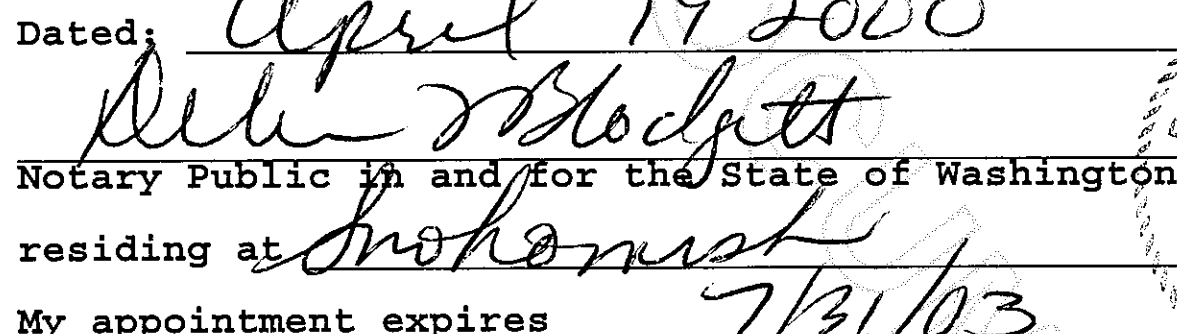 Dated: April 19 2000
Blodgett
Notary Public in and for the State of Washington
residing at Snohomish
My appointment expires 7/31/03